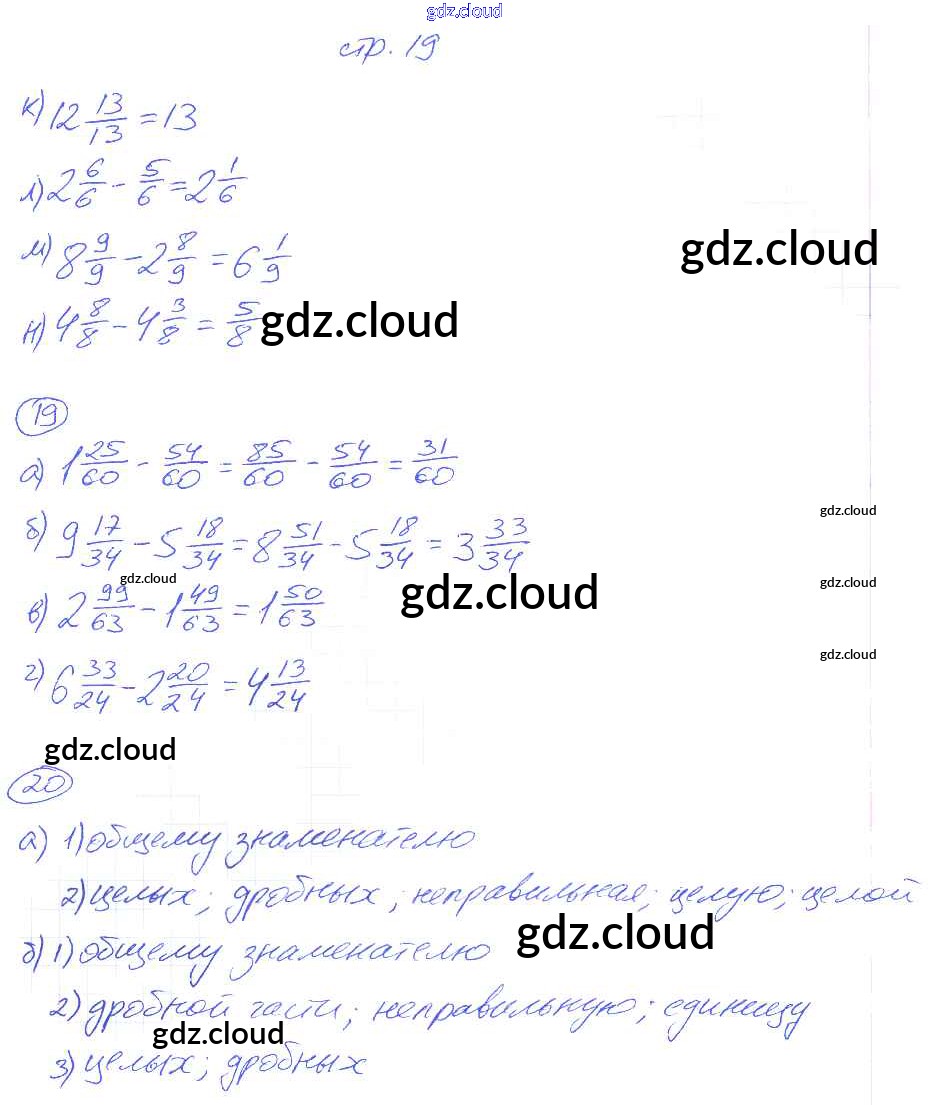 gdz.cloud
стр. 19
к) 12 13/13 = 13
л) 2 6/6 - 5/6 = 2 1/6
gdz.cloud
м) 8 9/9 - 2 8/9 = 6 1/9
н) 4 8/8 - 4 3/8 = 5/8 gdz.cloud
19
а) 1 25/60 - 54/60 = 85/60 - 54/60 = 31/60
gdz.cloud
б) 9 17/34 - 5 18/34 = 8 51/34 - 5 18/34 = 3 33/34
gdz.cloud gdz.cloud gdz.cloud
в) 2 99/63 - 1 49/63 = 1 50/63
gdz.cloud
г) 6 33/24 - 2 20/24 = 4 13/24
gdz.cloud
20
а) 1) общему знаменателю
2) целых; дробных; неправильная; целую; целой
gdz.cloud
б) 1) общему знаменателю
2) дробной части; неправильную; единицу
gdz.cloud
3) целых; дробных